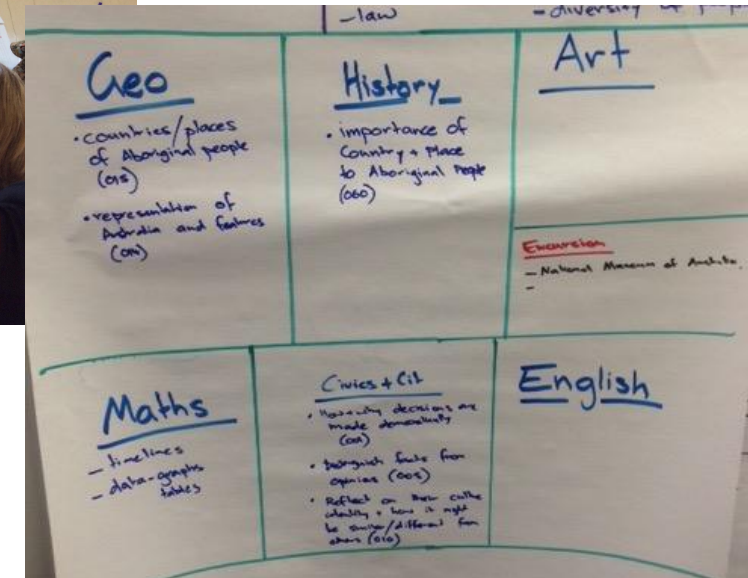 -law
- diversity of people
Geo
• countries/places
of Aboriginal people
(015)
• representation of
Australia and features
History
• importance of
Country + Place
to Aboriginal People
(060)
Art
Excursion
- National Museum of Australia.
-
Maths
- timelines
- data-graphs
tables
Civics + Cit
• How + why decisions are
made democratically
• Distinguish facts from
opinions (005)
• Reflect on their
identity + how it might
be similar/different from
others (010)
English